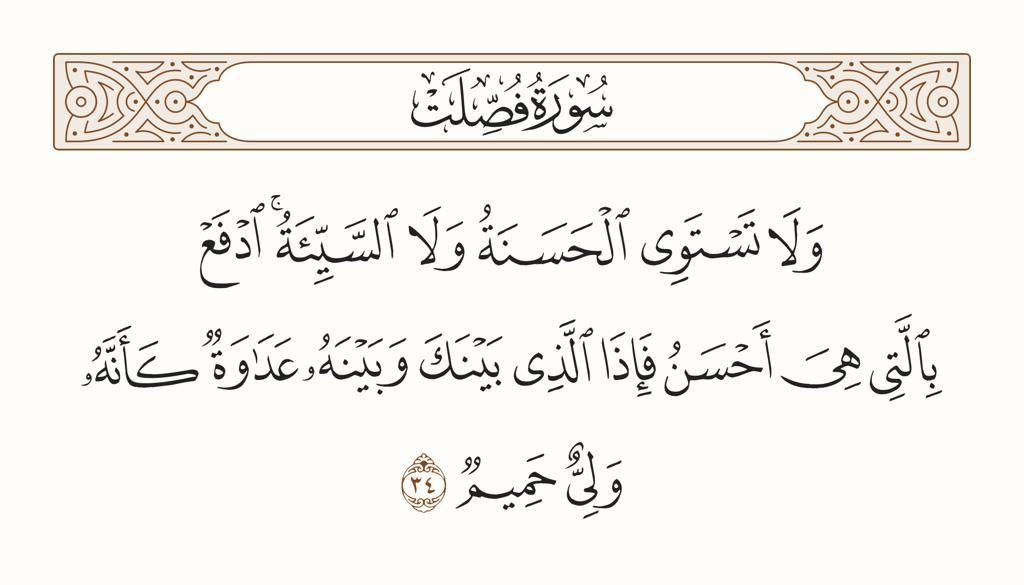 سُورَةُ فُصِّلَتْ
وَلَا تَسْتَوِى ٱلْحَسَنَةُ وَلَا ٱلسَّيِّئَةُ ۚ ٱدْفَعْ
بِٱلَّتِى هِىَ أَحْسَنُ فَإِذَا ٱلَّذِى بَيْنَكَ وَبَيْنَهُۥ عَدَٰوَةٌ كَأَنَّهُۥ
وَلِىٌّ حَمِيمٌ ٣٤